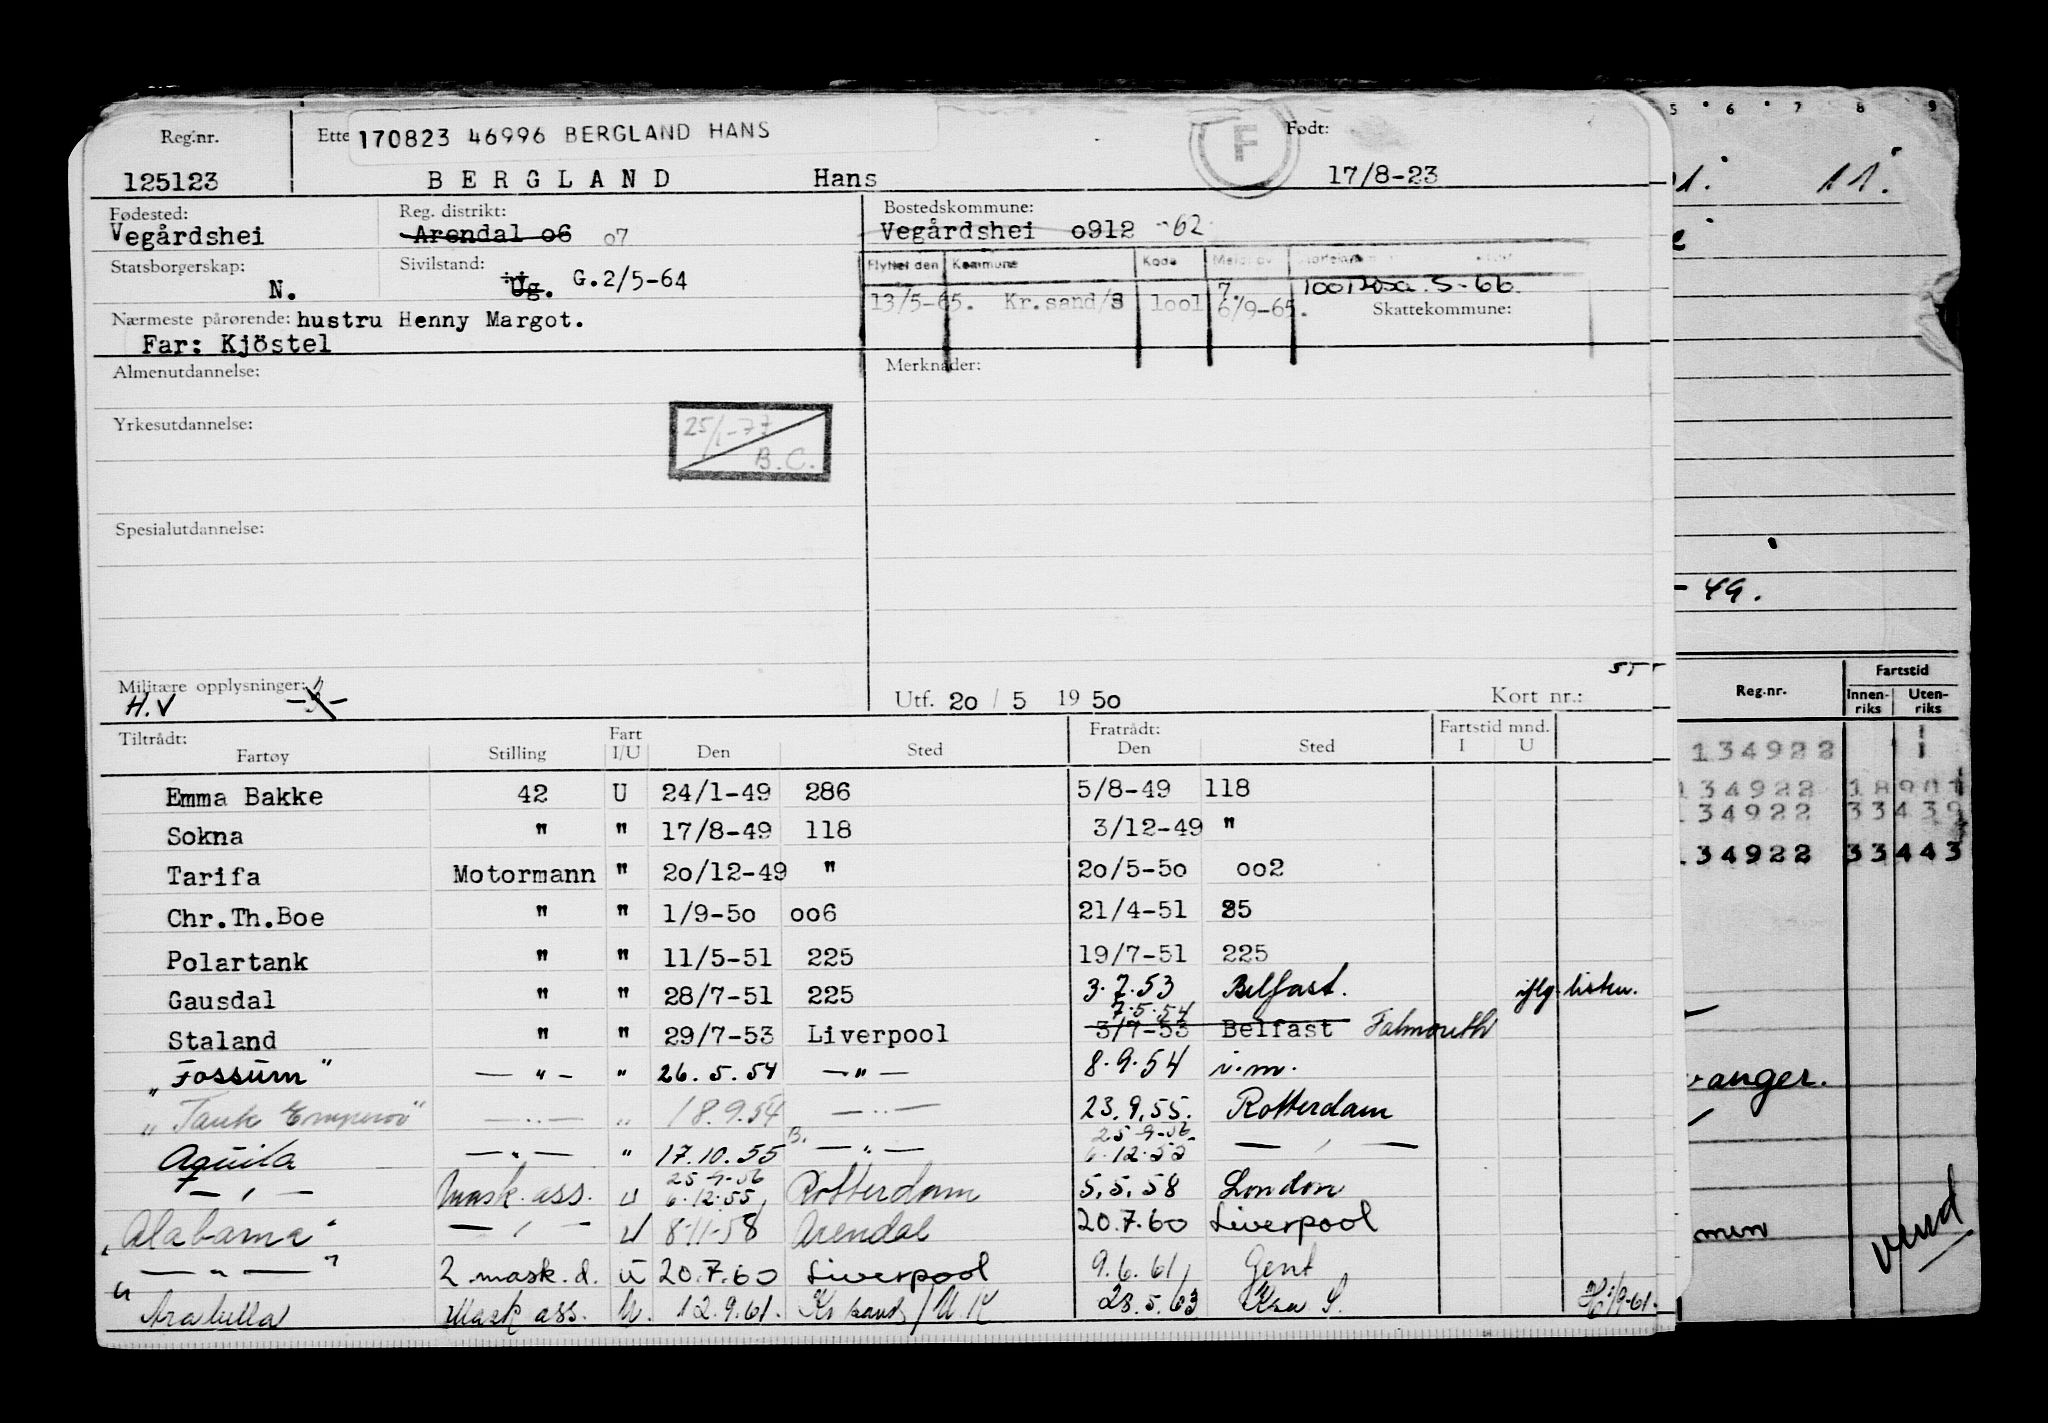 Reg.nr. Ette 170823 46996 BERGLAND HANS F Født:
125123 BERGLAND Hans 17/8-23
Fødested: Reg. distrikt: Bostedskommune:
Vegårdshei Arendal o6 07 Vegårdshei o912 -62
Statsborgerskap: Sivilstand: Flyttet den Kommune Kode
N. Ug. G.2/5-64 13/5-65. Kr.sand/S 1001 6/9-65.
Nærmeste pårørende: hustru Henny Margot. Skattekommune:
Far: Kjöstel
Almenutdannelse: Merknader:
Yrkesutdannelse: 25/1-77 B.C.
Spesialutdannelse:
Militære opplysninger:
H.V Utf. 2o / 5 19 5o Kort nr.:
Tiltrådt: Fratrådt: Fartstid mnd.
Fartøy Stilling Fart I/U Den Sted Den Sted I U
Emma Bakke 42 U 24/1-49 286 5/8-49 118
Sokna " " 17/8-49 118 3/12-49 "
Tarifa Motormann " 2o/12-49 " 2o/5-5o oo2
Chr.Th.Boe " " 1/9-5o oo6 21/4-51 85
Polartank " " 11/5-51 225 19/7-51 225
Gausdal " " 28/7-51 225 3.7.53 Belfast.
7.5.54
Staland " " 29/7-53 Liverpool 3/7-53 Belfast Falmouth
"Fossum" — " — " 26.5.54 — " — 8.9.54 i.m.
"Tank Emperor" — " — " 18.9.54 — " — 23.9.55. Rotterdam
25-9-56
Aquila — " — " 17.10.55 — " — 6.12.55 — " —
25-9-56
— " — Mask. ass. u 6.12.55 Rotterdam 5.5.58 London
"Alabama" — " — U 8-11-58 Arendal 20.7.60 Liverpool
" — " — " 2. mask. d. u 20.7.60 Liverpool 9.6.61 Gent
Arabella Mask ass. U. 12.9.61. Kr sand/U.K 23.5.63 Krs S. 1/9-61.
5 6 7 8 9
11.
- 49.
Reg.nr. Fartstid
Innenriks Utenriks
134922
134922
134922 33439
134922 33443
anger.
vend